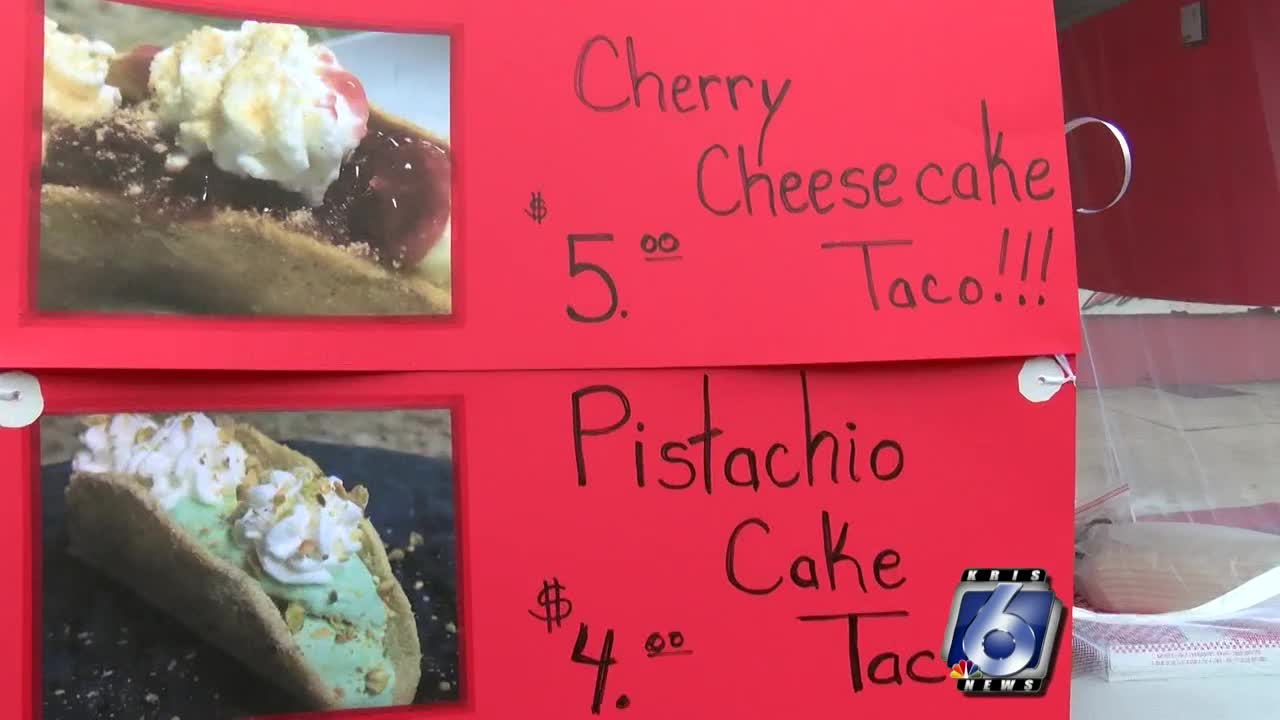 Cherry
Cheesecake
$5.00 Taco!!!
Pistachio
Cake
$4.00 Tac
KRIS
6
NEWS